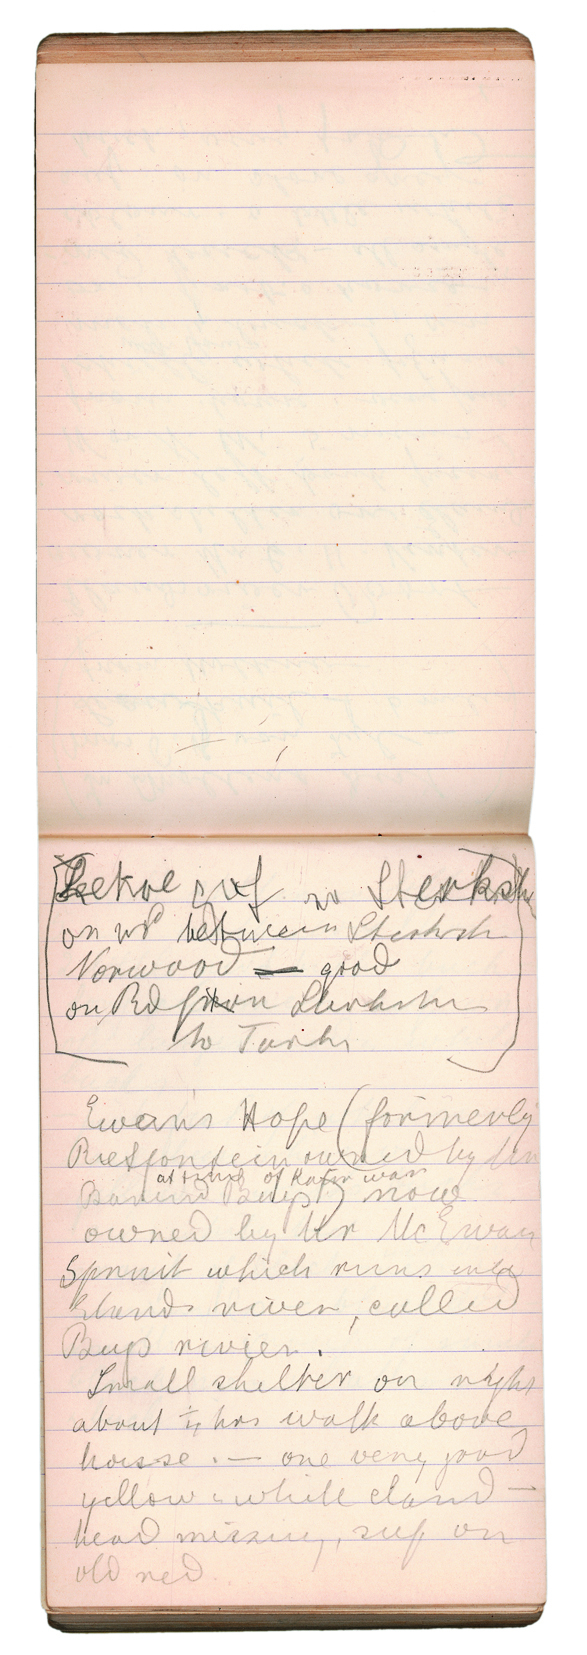 on rd between Sterkstr
Norwood — good
on Rd from Sterkstr
to Tarks
Ewan's Hope (formerly
owned by Mr
at time of Kafir war
) now
owned by Mr McEwan
Spruit which runs into
Elands river, called
Buys rivier.
Small shelter on right
about ¼ hrs walk above
house. — one very good
yellow & white eland —
head missing, sup on
old red